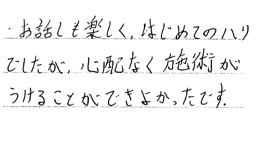 ・お話しも楽しく、はじめてのハリ
でしたが、心配なく施術が
うけることができよかったです。